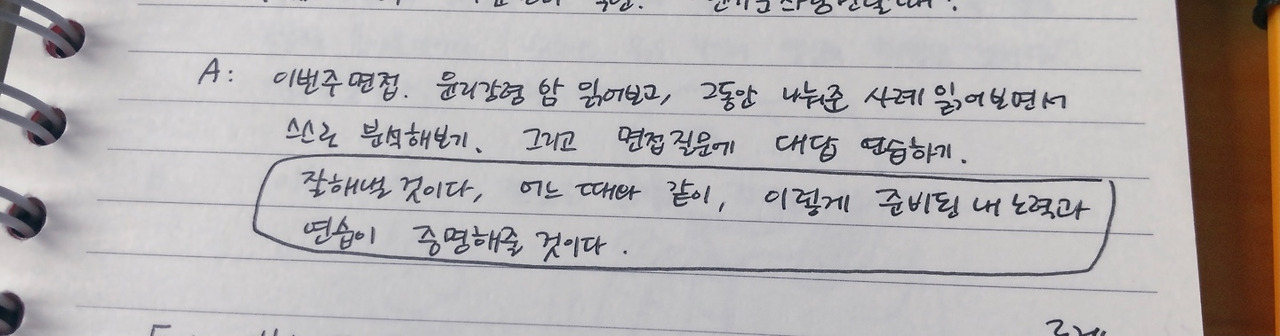 A: 이번주 면접. 윤리강령 함 읽어보고, 그동안 나눠준 사례 읽어보면서
스스로 분석해보기. 그리고 면접질문에 대답 연습하기.
잘해낼 것이다, 어느 때와 같이, 이렇게 준비된 내 노력과
연습이 증명해줄 것이다.